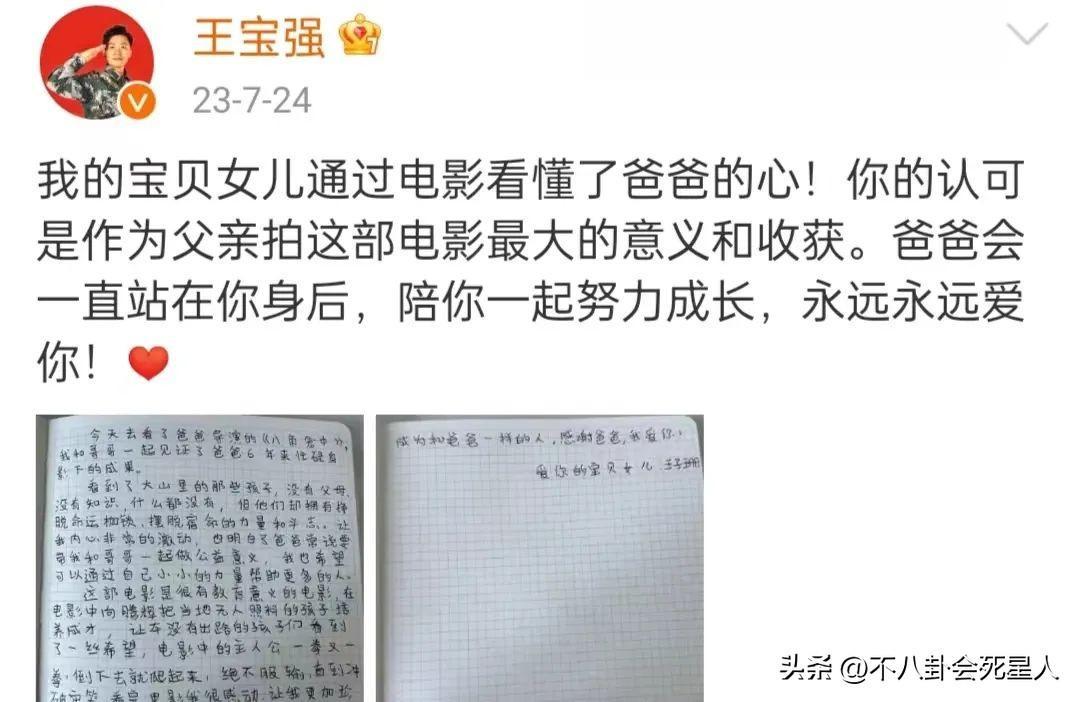 王宝强
23-7-24
我的宝贝女儿通过电影看懂了爸爸的心！你的认可
是作为父亲拍这部电影最大的意义和收获。爸爸会
一直站在你身后，陪你一起努力成长，永远永远爱
你！
今天去看了爸爸导演的《八角笼中》，
我和哥哥一起见证了爸爸6年来忙碌身
影下的成果。
看到了大山里的那些孩子，没有父母，
没有知识，什么都没有，但他们却拥有挣
脱命运枷锁、摆脱宿命的力量和斗志。让
我内心非常的激动，也明白了爸爸常说要
带我和哥哥一起做公益意义，我也希望
可以通过自己小小的力量帮助更多的人。
这部电影是很有教育意义的电影，在
电影中向腾辉把当地无人照料的孩子培
养成才，让本没有出路的孩子们看到
了一丝希望，电影中的主人公一拳又一
拳，倒下去就爬起来，绝不服输，直到冲
看完电影我很感动，让我更加
成为和爸爸一样的人，感谢爸爸，我爱你，
爱你的宝贝女儿
头条 @不八卦会死星人